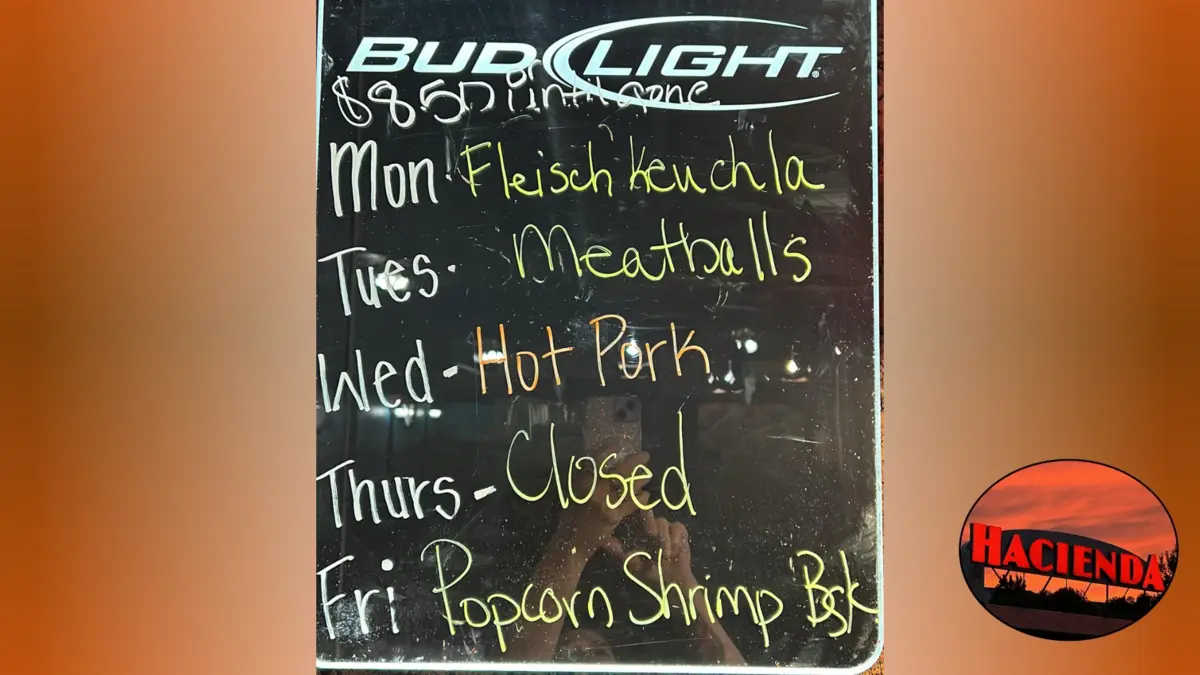 BUD LIGHT
$8.50 until gone
Mon. Fleisch Keuchla
Tues. Meatballs
Wed - Hot Pork
Thurs - Closed
Fri Popcorn Shrimp Bsk
HACIENDA